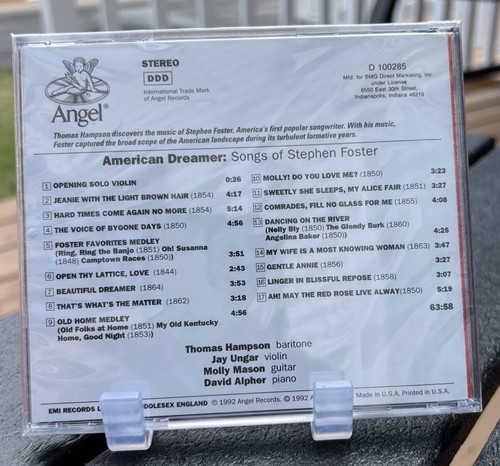 STEREO
DDD
International Trade Mark
of Angel Records
D 100285
Mfd. for BMG Direct Marketing, Inc.
under License
6550 East 30th Street,
Indianapolis, Indiana 46219
Angel®
Thomas Hampson discovers the music of Stephen Foster, America's first popular songwriter. With his music,
Foster captured the broad scope of the American landscape during its turbulent formative years.
American Dreamer: Songs of Stephen Foster
1 OPENING SOLO VIOLIN 0:26
2 JEANIE WITH THE LIGHT BROWN HAIR (1854) 4:17
3 HARD TIMES COME AGAIN NO MORE (1854) 5:14
4 THE VOICE OF BYGONE DAYS (1850) 4:56
5 FOSTER FAVORITES MEDLEY
(Ring, Ring the Banjo (1851) Oh! Susanna
(1848) Camptown Races (1850)) 3:51
6 OPEN THY LATTICE, LOVE (1844) 2:43
7 BEAUTIFUL DREAMER (1864) 3:53
8 THAT'S WHAT'S THE MATTER (1862) 3:18
9 OLD HOME MEDLEY 4:56
(Old Folks at Home (1851) My Old Kentucky
Home, Good Night (1853))
10 MOLLY! DO YOU LOVE ME? (1850) 3:23
11 SWEETLY SHE SLEEPS, MY ALICE FAIR (1851) 3:27
12 COMRADES, FILL NO GLASS FOR ME (1855) 4:08
13 DANCING ON THE RIVER
(Nelly Bly (1850) The Glendy Burk (1860)
Angelina Baker (1850)) 4:25
14 MY WIFE IS A MOST KNOWING WOMAN (1863) 3:47
15 GENTLE ANNIE (1856) 3:27
16 LINGER IN BLISSFUL REPOSE (1858) 3:07
17 AH! MAY THE RED ROSE LIVE ALWAY(1850) 5:19
63:58
Thomas Hampson baritone
Jay Ungar violin
Molly Mason guitar
David Alpher piano
EMI RECORDS L DDLESEX ENGLAND ℗ 1992 Angel Records. © 1992 A Made in U.S.A. Printed in U.S.A.